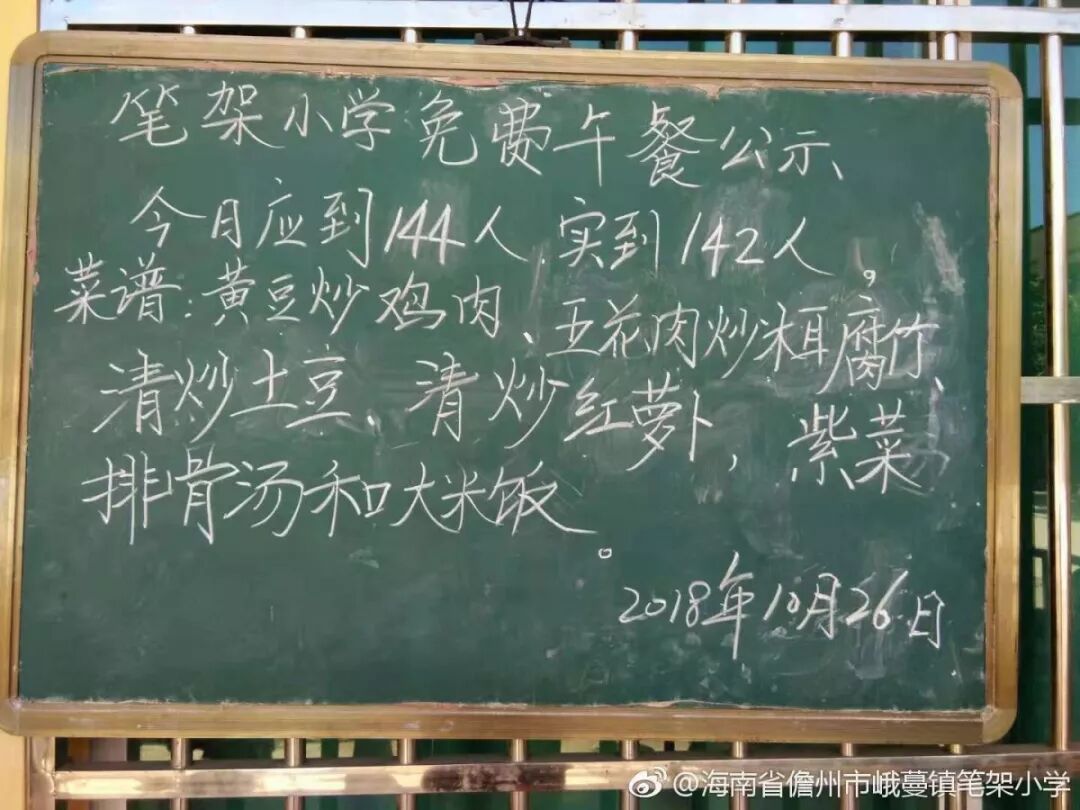 笔架小学免费午餐公示、
今日应到144人,实到142人。
菜谱:黄豆炒鸡肉、五花肉炒木耳腐竹、
清炒土豆、清炒红萝卜,紫菜
排骨汤和大米饭。
2018年10月26日
@海南省儋州市峨蔓镇笔架小学